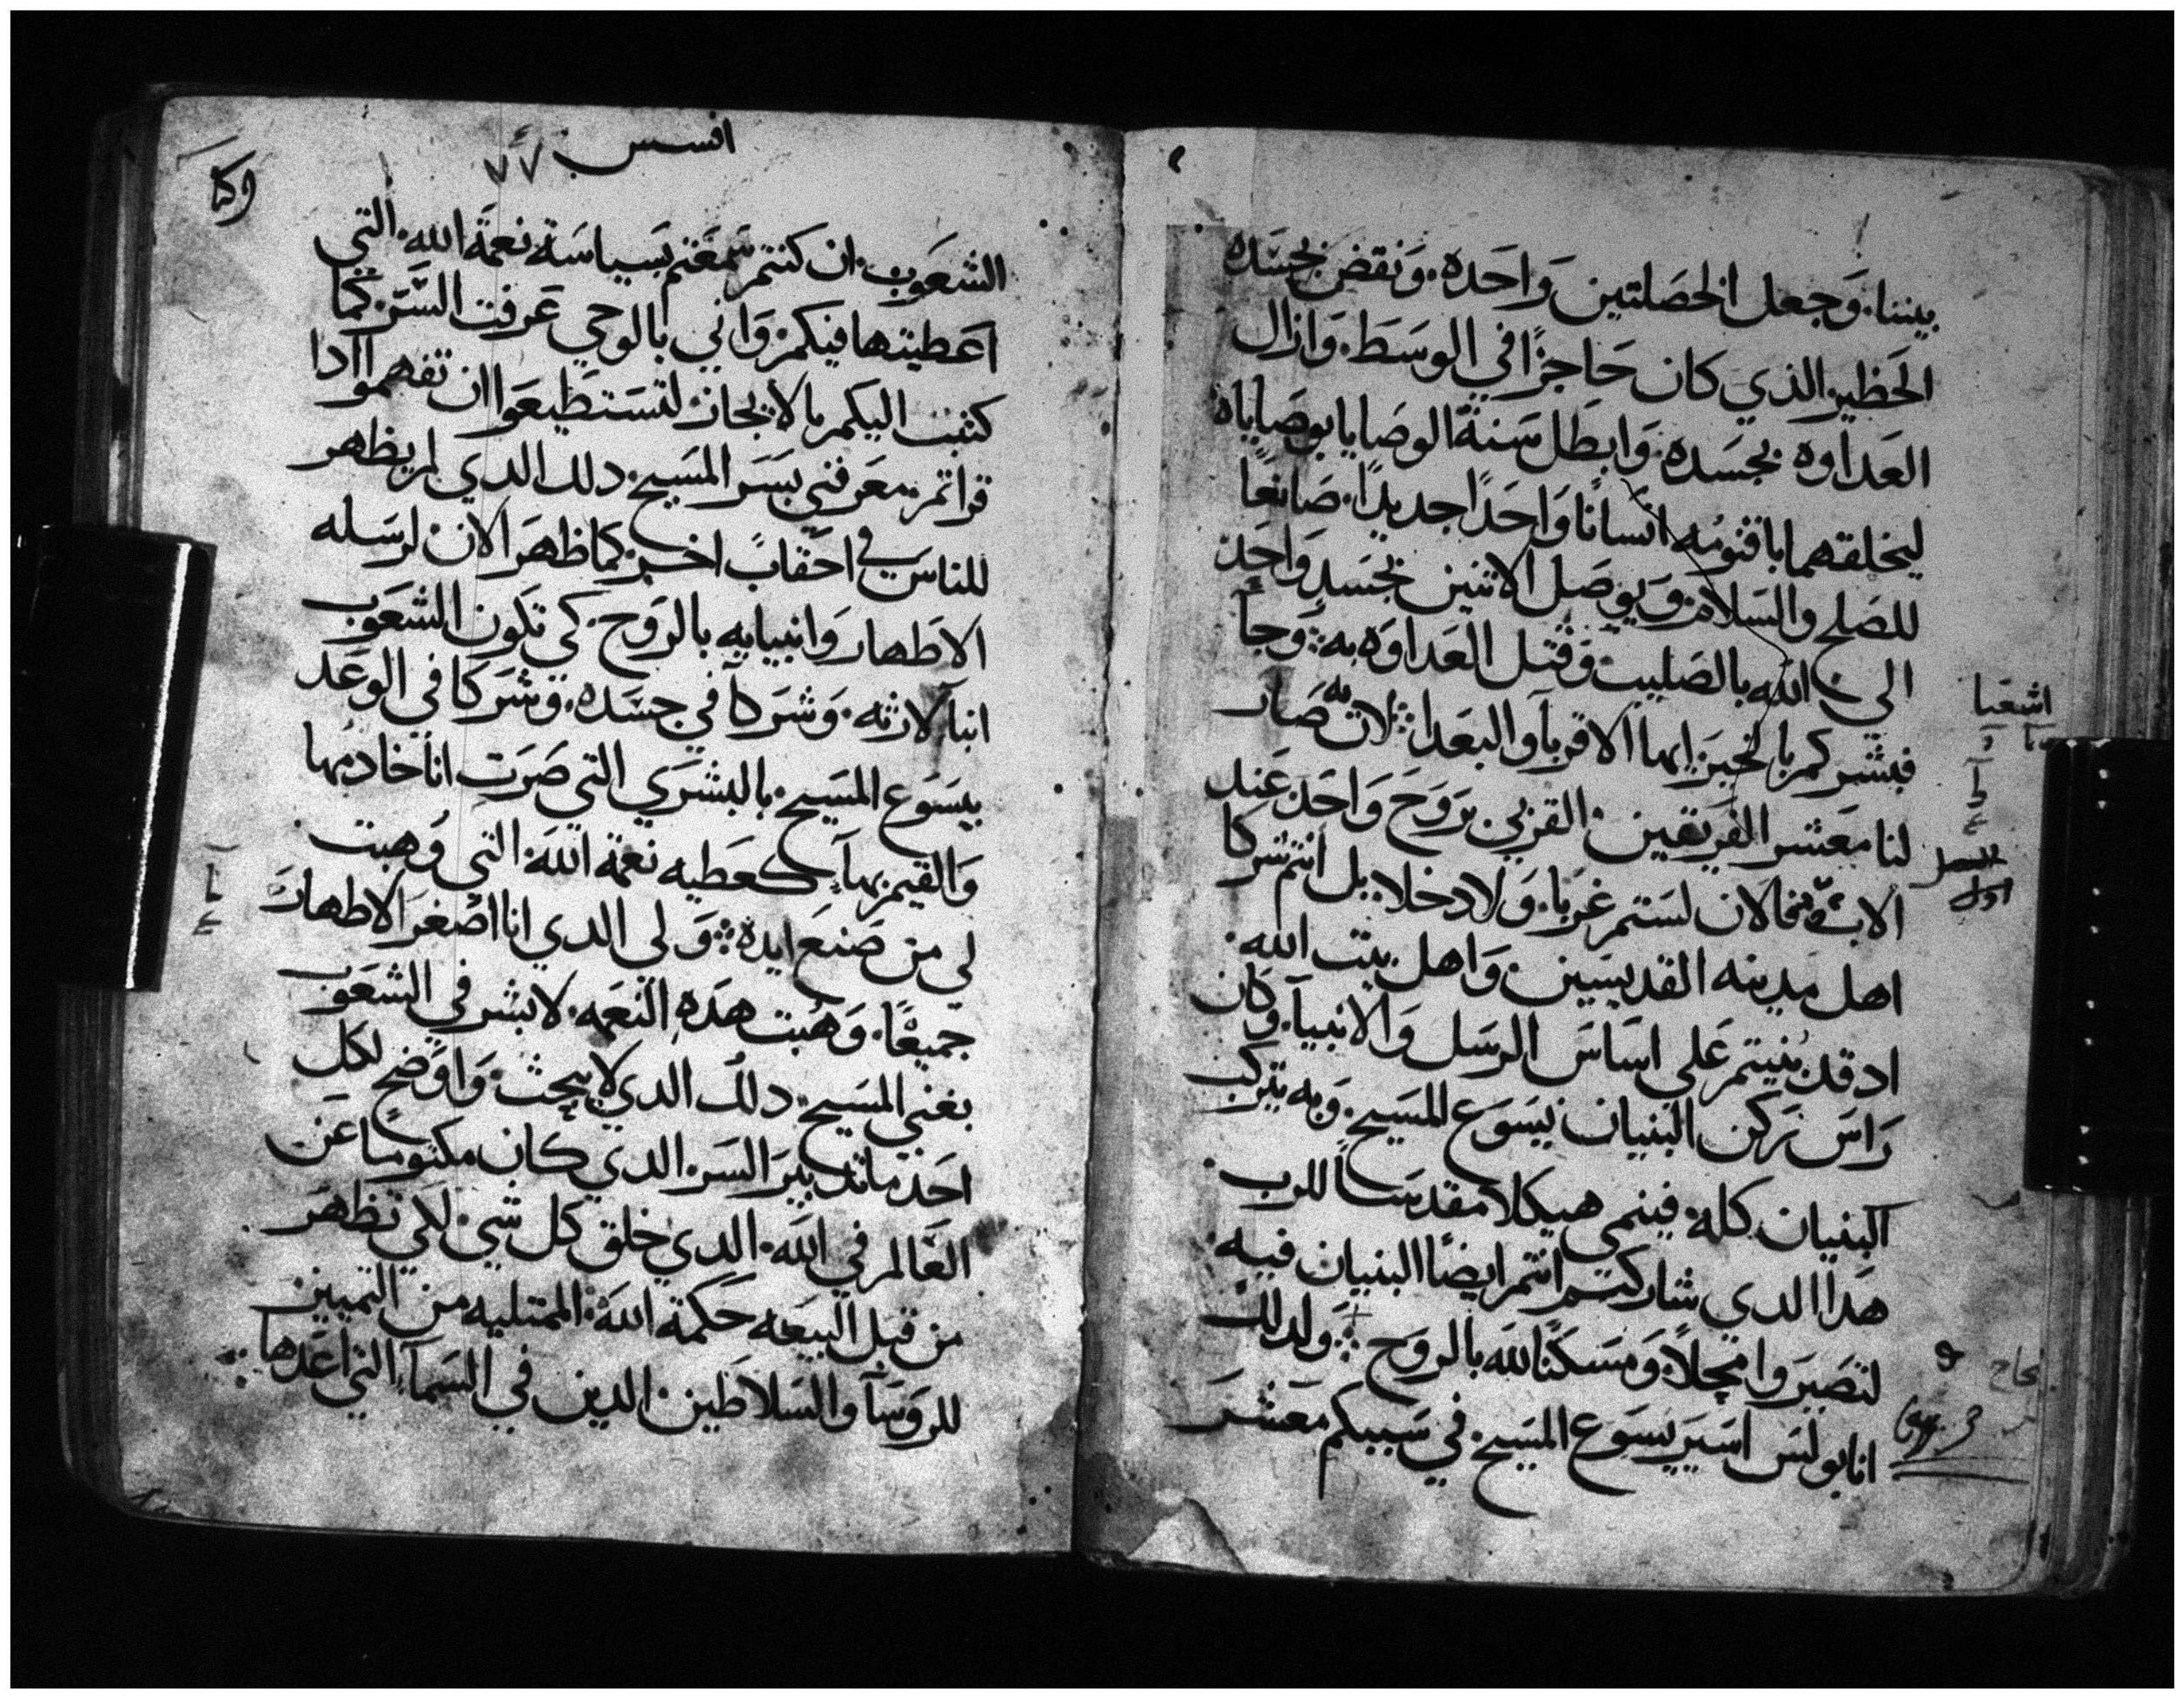 بيننا. وجعل الخصلتين واحده. ونقض بجسده
الحظير الذي كان حاجزًا في الوسط. وازال
العداوه بجسده. وابطل سنة الوصايا بوصاياه
ليخلقهما باقنومه انسانا واحدًا جديدًا. صانعًا
للصلح والسلام. ويوصل الاثنين بجسد واحد
الي الله بالصليب. وقتل العداوه به. وجا
فبشركم بالخير ايها الاقربا والبعدا. لان به صار
لنا معشر الفريقين. القربي بروح واحد عند
الاب. فالان لستم غربا. ولا دخلا. بل انتم شركا
اهل مدينه القديسين. واهل بيت الله.
اد قد بنيتم علي اساس الرسل والانبيا. وكان
راس ركن البنيان يسوع المسيح. وبه يتركب
البنيان كله. فينمي هيكلا مقدسا للرب.
هدا الدي شاركتم انتم ايضًا البنيان فيه.
لتصيروا محلاً. ومسكنًا لله بالروح. ولدلك
انا بولس اسير يسوع المسيح. في سببكم معشر
اشعيا
الفصل
الاول
افسس ٧٧
الشعوب. ان كنتم سمعتم بسياسة نعمة الله. التي
اعطيتها فيكم. واني بالوحي عرفت السر. كما
كتبت اليكم بالايجاز. لتستطيعوا ان تفهموا ادا
قراتم. معرفتي بسر المسيح. دلك الدي لم يظهر
للناس في احقاب اخر. كما ظهر الان لرسله
الاطهار وانبيايه بالروح. كي تكون الشعوب
ابنا لارثه. وشركا في جسده. وشركا في الوعد
بيسوع المسيح. بالبشري التي صرت انا خادمها
والقيم بها. كعطيه نعمة الله. التي وهبت
لي من صنع ايده. ولي الدي انا اصغر الاطهار
جميعًا. وهبت هده النعمه. لابشر في الشعوب
بغني المسيح. دلك الدي لا يبحث. واوضح لكل
احد ما تدبير السر. الدي كان مكتومًا عن
العالم في الله. الدي خلق كل شي. لكي تظهر
من قبل البيعه حكمة الله. الممتليه من التمييز
للروسا والسلاطين. الدين في السما. التي اعدها